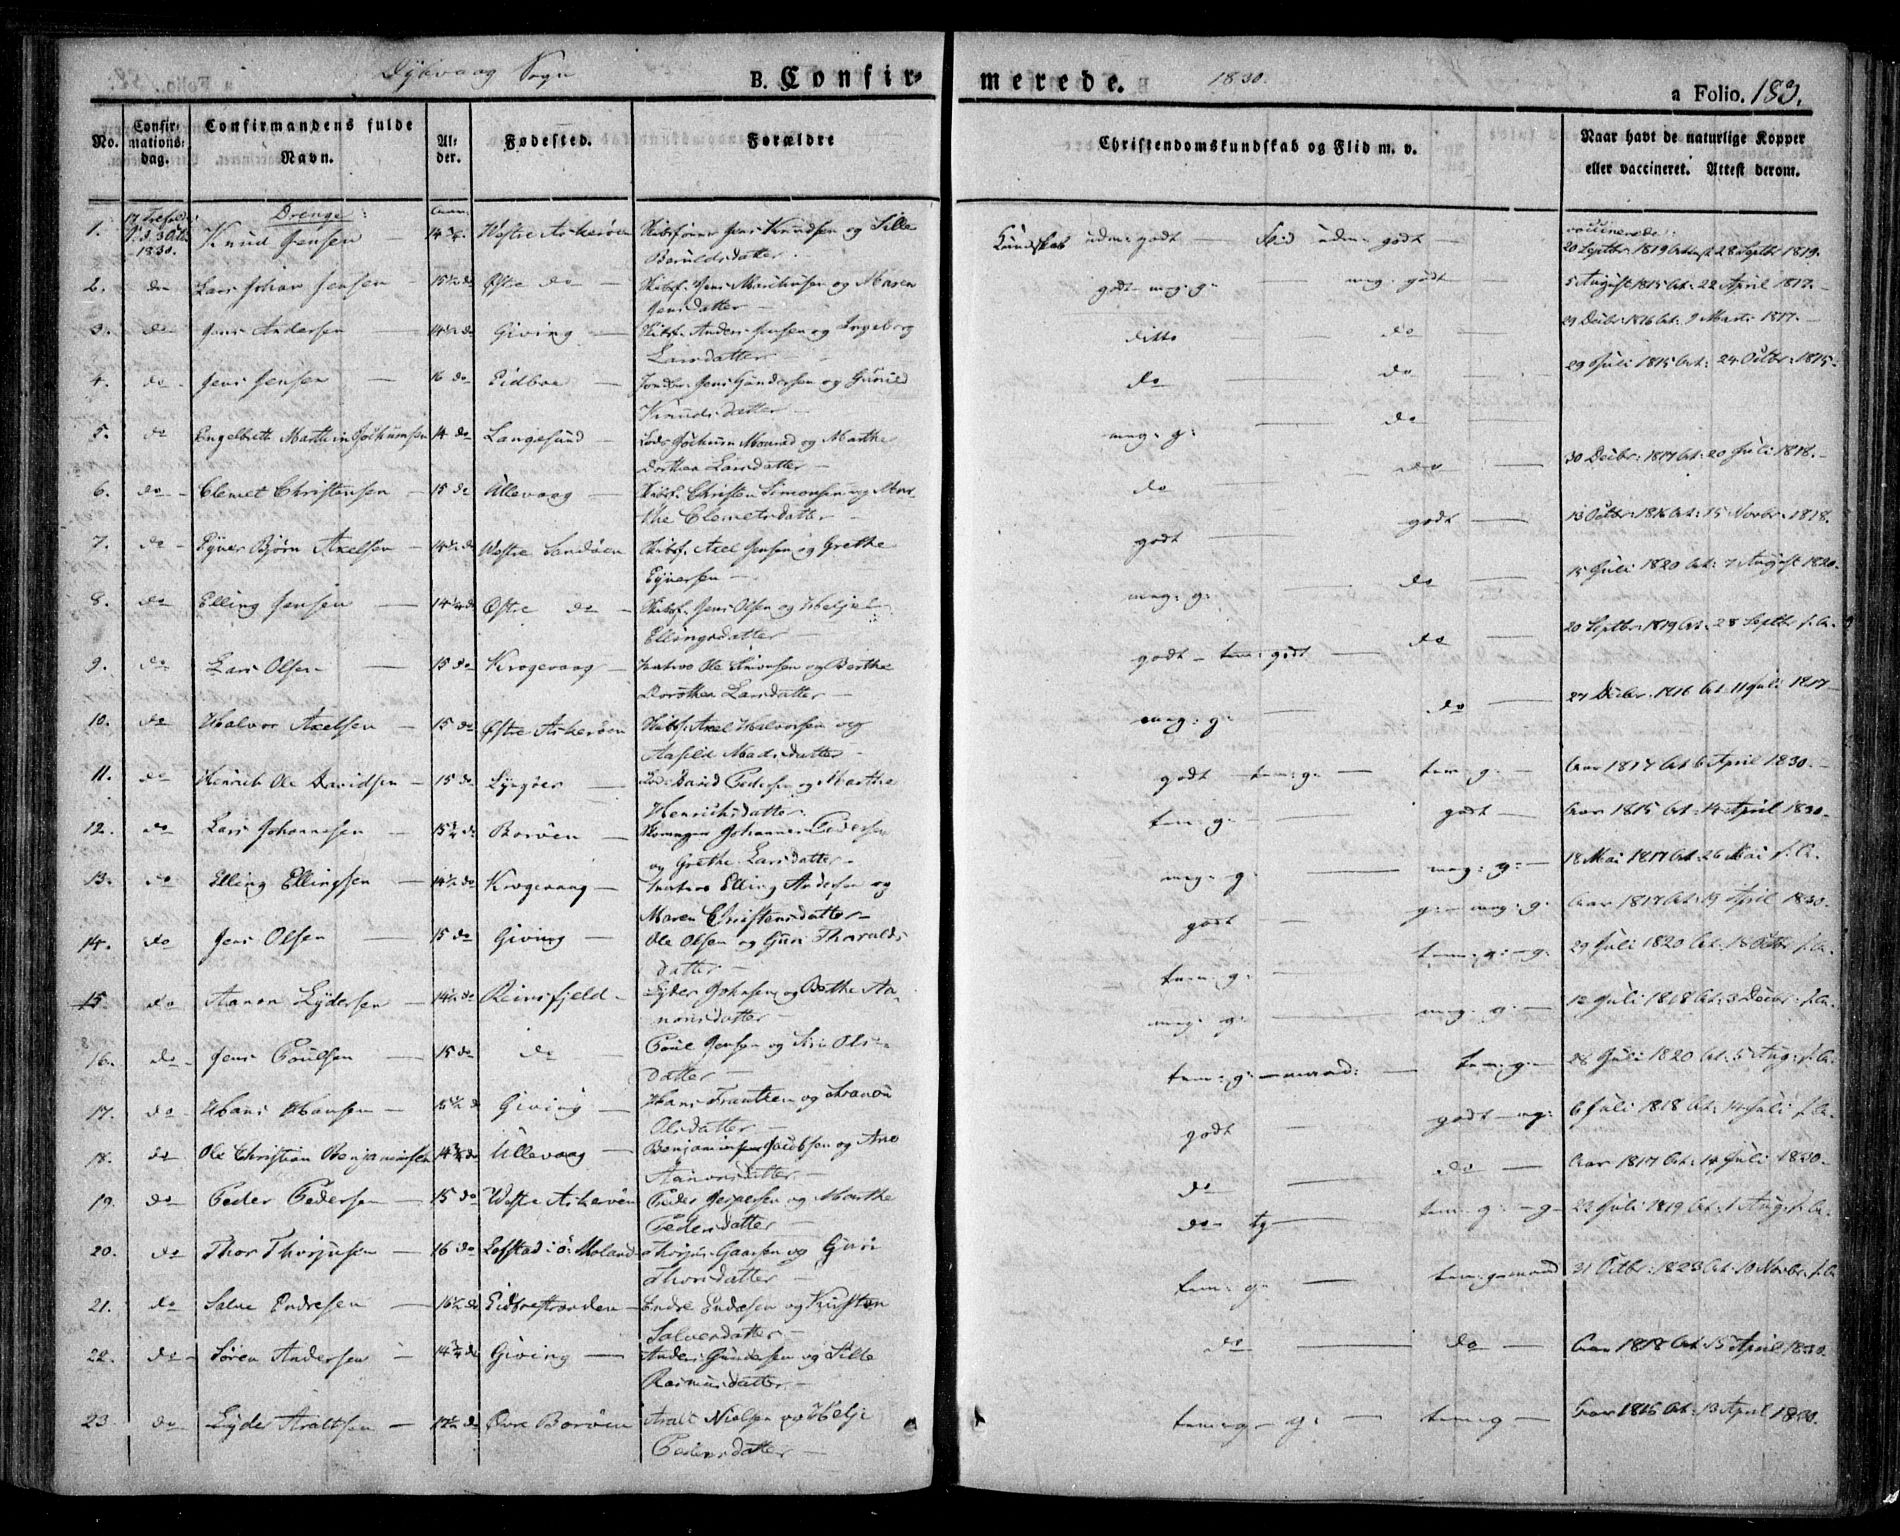 Dybvaag Sogn B. Confirmerede. 1830. a Folio. 183.
No. Confirmationsdag. Confirmandens fulde Navn. Alder. Fødested. Forældre Christendomskundskab og Flid m. v. Naar havt de naturlige Kopper eller vaccineret. Attest derom.
Drenge: Aar vaccinerede:
1. 1830. Knud Jensen 14 3/4 Westre Askerøen Skibsfører Jens Knudsen og Sille Kundskab udm: godt — Flid udm: godt — 20 Septbr 1819 Attest 28 Septbr 1819.
Baruldsdatter.
2. do Lars Johan Jensen 15 1/2 do Østre do — Skibsf. Jens Markusen og Maren godt meg: g: — meg: godt — 5 August 1815 At: 22 April 1817.
Jensdatter
3. do Jens Andersen 14 1/2 do Giving — Skibsf. Anders Jensen og Ingeborg ditto — do — 29 Decbr 1816 At: 9 Marts 1817.
Larsdatter —
4. do Jens Jensen — 16 do Eidboe — Jens Gundersen og Gunild do — do — 29 Juli 1815 At: 24 Octbr: 1815.
Knudsdatter —
5. do Engelbrett Marthin Jochumsen 14 do Langesund — Lods Jochum Monrad og Marthe meg: g: — do — 30 Decbr: 1817 At: 20 Juli 1818.
Dorthea Larsdatter —
6. do Clemet Christensen — 15 do Ullevaag — Skibsf. Christen Simonsen og Mar- do — do — 13 Octbr: 1816 At: 15 Novbr: 1818.
the Clemetsdatter —
7. do Eyver Bjørn Axelsen — 14 1/2 do Westre Sandøen Skibsf. Axel Jensen og Grethe godt — godt — 15 Juli 1820 At: 7 August 1820.
Eyversen —
8. do Elling Jensen — 14 1/4 do Østre do — Skibsf. Jens Olsen og Helje meg: g: — do — 20 Septbr: 1819 At: 28 Septbr s. A.
Ellingsdatter —
9. do Lars Olsen — 15 do Krogevaag — Ole Simonsen og Berthe godt — tem: godt — do — 27 Decbr: 1816 At 11 Juli 1817
Dorothea Larsdatter —
10. do Halvor Axelsen — 15 do Østre Askerøen Skibsf. Axel Halvorsen og meg: g: — do —
Aasild Madsdatter —
11. do Henrich Ole Davidsen — 15 do Lyngøer — Lods David Pedersen og Marthe godt — tem: g: — tem: g: — Aar 1817 At 6 April 1830.
Henrichsdatter
12. do Lars Johannesen — 15 1/4 do Borøen — Johannes Pedersen tem: g: — godt — Aar 1815 At: 14 April 1830.
og Grethe Larsdatter —
13. do Elling Ellingsen — 14 1/2 do Krogevaag — Elling Andersen og meg: g: — meg: g: — 18 Mai 1817 At: 26 Mai s. A.
Maren Christensdatter —
14. do Jens Olsen — 15 do Giving — Ole Olsen og Guri Tharalds- godt — g: — meg: g: Aar 1817 At: 19 April 1830.
datter —
15 do Aanon Lydersen — 14 1/2 do Reinsfjeld — Lyder Johnsen og Berthe Aa- tem: g: — tem: g: — g: 29 Juli 1820 At: 18 Octbr s. A.
nonsdatter —
16. do Jens Poulsen — 15 do do — Poul Jensen og Siri Ols- meg: g: — meg: g: — 12 Juli 1818 At: 3 Decbr: s. A.
datter —
17. do Hans Hansen — 15 1/2 do Giving — Hans Frantzen og tem: g: — maad: — tem: g: — 28 Juli 1820 At: 5 Aug: s. A.
Olsdatter —
18. do Ole Christian Benjaminsen 14 3/4 do Ullevaag — Benjamin Jacobsen og Ane godt — godt — mg: 6 Juli 1818 At: 14 Juli s. A.
Aanonsdatter —
19. do Peder Pedersen — 15 do Westre Askerøen Peder Jespersen og Marthe do — do — Aar 1817 At: 14 Juli 1830.
Pedersdatter —
20. do Thor Thorjusen — 16 do Lofstad i ø: Moland Thorjus Gaarsen og Guri do — tg — tem: g: — g — 22 Juli 1819 At: 1 Aug: s. A.
Thorsdatter —
21. do Salve Endresen — 16 1/2 do Eidbrestranden — Endre Endresen og Kirsten tem: g: — tem: g: maad 21 Octbr: 1823 At: 10 Novbr: s. A.
Salvesdatter —
22. do Søren Andersen — 14 3/4 do Giving — Anders Gundersen og Sille do — do — Aar 1818 At: 15 April 1830.
Rasmusdatter —
23 do Lyder Araltsen — 17 1/2 do Øvre Borøen Aralt Nielsen og Helje tem: g — g: — tem: g — Aar 1815 At: 13 April 1830.
Pedersdatter —